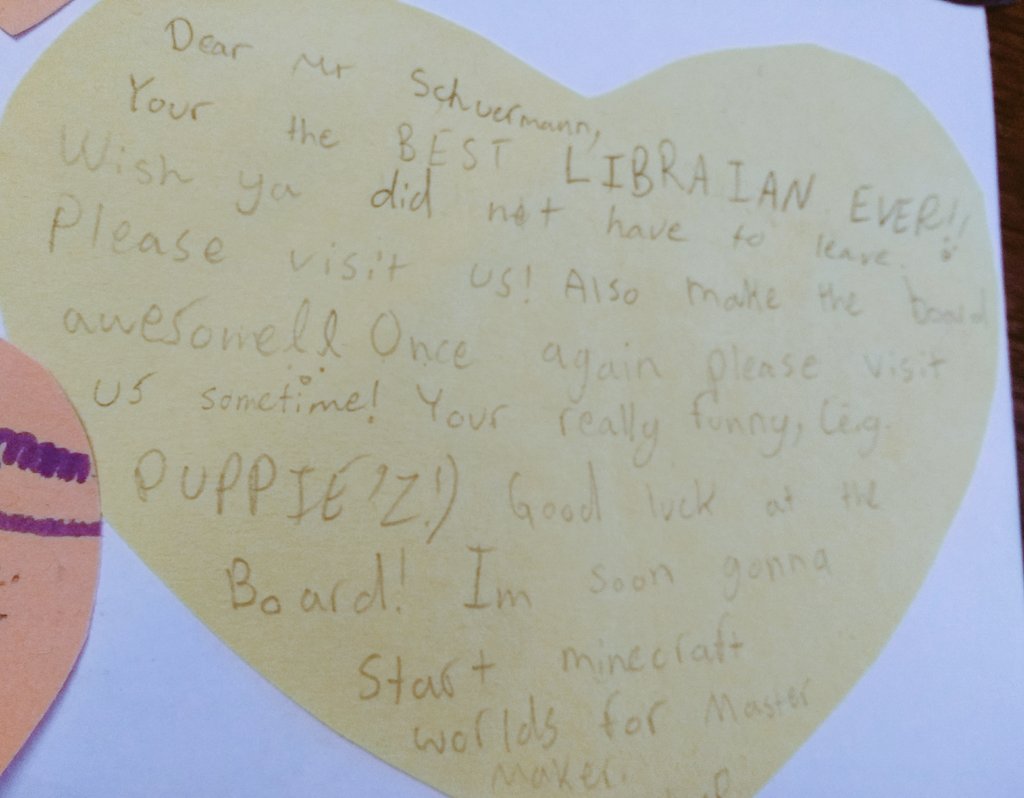 Dear Mr Schuermann,
Your the BEST LIBRAIAN EVER!!
Wish ya did not have to leave.
Please visit us! Also make the board
awesome!! Once again please visit
us sometime! Your really funny, (e.g.
PUPPIE'Z!) Good luck at the
Board! Im soon gonna
Start minecraft
worlds for Master
Maker.